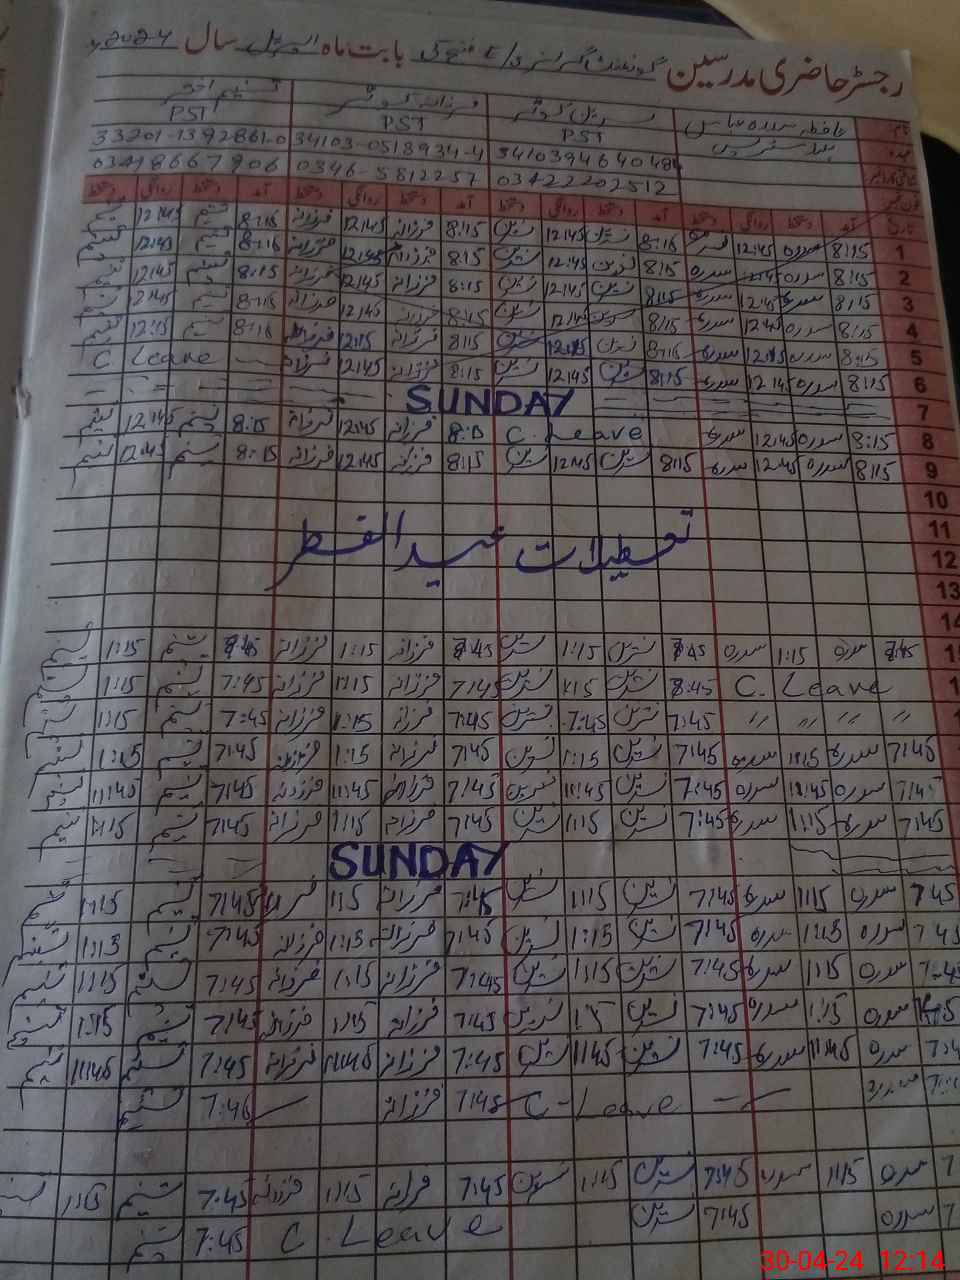 رجسٹر حاضری مدرسین گورنمنٹ گرلز بابت ماہ اپریل سال 2024
نام سدرہ نسرین کوثر فرزانہ کوثر تسنیم اختر
عہدہ PST PST PST
3410394640484 34103-0518934-4 33201-1392861-0
03422202512 0346-5812257
تاریخ آمد دستخط روانگی دستخط آمد دستخط روانگی دستخط آمد دستخط روانگی دستخط آمد دستخط روانگی دستخط
1 8:15 سدرہ 12:45 سدرہ 8:16 نسرین 12:45 نسرین 8:15 فرزانہ 12:45 فرزانہ 8:16 تسنیم 12:45 تسنیم
2 8:15 سدرہ 12:45 سدرہ 8:15 نسرین 12:45 نسرین 8:15 فرزانہ 12:45 فرزانہ 8:16 تسنیم 12:45 تسنیم
3 8:15 سدرہ 12:45 سدرہ 8:15 نسرین 12:45 نسرین 8:15 فرزانہ 12:45 فرزانہ 8:15 تسنیم 12:45 تسنیم
4 8:15 سدرہ 12:45 سدرہ 8:15 نسرین 12:45 نسرین 8:15 فرزانہ 12:45 فرزانہ 8:16 تسنیم 12:45 تسنیم
5 8:15 سدرہ 12:15 سدرہ 8:16 نسرین 12:15 نسرین 8:15 فرزانہ 12:15 فرزانہ 8:16 تسنیم 12:15 تسنیم
6 8:15 سدرہ 12:45 سدرہ 8:15 نسرین 12:45 نسرین 8:15 فرزانہ 12:45 فرزانہ C Leave
7 SUNDAY
8 8:15 سدرہ 12:45 سدرہ C. Leave 8:15 فرزانہ 12:45 فرزانہ 8:15 تسنیم 12:45 تسنیم
9 8:15 سدرہ 12:45 سدرہ 8:15 نسرین 12:45 نسرین 8:15 فرزانہ 12:45 فرزانہ 8:15 تسنیم 12:45 تسنیم
10
11
تعطیلات عید الفطر
12
13
14
7:45 سدرہ 1:15 سدرہ 7:45 نسرین 1:15 نسرین 7:45 فرزانہ 1:15 فرزانہ 7:45 تسنیم 1:15 تسنیم
C. Leave 8:45 نسرین 1:15 نسرین 7:45 فرزانہ 1:15 فرزانہ 7:45 تسنیم 1:15 تسنیم
" " " " 7:45 نسرین 7:45 نسرین 7:45 فرزانہ 1:15 فرزانہ 7:45 تسنیم 1:15 تسنیم
7:45 سدرہ 1:15 سدرہ 7:45 نسرین 1:15 نسرین 7:45 فرزانہ 1:15 فرزانہ 7:45 تسنیم 1:15 تسنیم
سدرہ 11:45 سدرہ 7:45 نسرین 11:45 نسرین 7:45 فرزانہ 11:45 فرزانہ 7:45 تسنیم 11:45 تسنیم
7:45 سدرہ 1:15 سدرہ 7:45 نسرین 1:15 نسرین 7:45 فرزانہ 1:15 فرزانہ 7:45 تسنیم 1:15 تسنیم
SUNDAY
7:45 سدرہ 1:15 سدرہ 7:45 نسرین 1:15 نسرین 7:45 فرزانہ 1:15 فرزانہ 7:45 تسنیم 1:15 تسنیم
7:45 سدرہ 1:15 سدرہ 7:45 نسرین 1:15 نسرین 7:45 فرزانہ 1:15 فرزانہ 7:45 تسنیم 1:15 تسنیم
سدرہ 1:15 سدرہ 7:45 نسرین 1:15 نسرین 7:45 فرزانہ 1:15 فرزانہ 7:45 تسنیم 1:15 تسنیم
سدرہ 1:15 سدرہ 7:45 نسرین نسرین 7:45 فرزانہ 1:15 فرزانہ 7:45 تسنیم 1:15 تسنیم
سدرہ 11:45 سدرہ 7:45 نسرین 11:45 نسرین 7:45 فرزانہ 11:45 فرزانہ 7:45 تسنیم 11:45 تسنیم
سدرہ C-Leave 7:45 فرزانہ 7:46 تسنیم
سدرہ 1:15 سدرہ 7:45 نسرین 1:15 نسرین 7:45 فرزانہ 1:15 فرزانہ 7:45 تسنیم 1:15
سدرہ 7:45 نسرین C. Leave 7:45 تسنیم
30-04-24 12:14